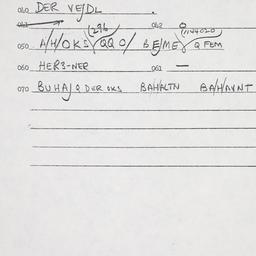 040 DER VE/DL
041 042 0
050 A/H/OKS/QQO/ BE/ME/ Q FEM
060 HER3-NER 061 —
070 BUHA/Q DUR OKS BAHALTN BA/H/AVNT